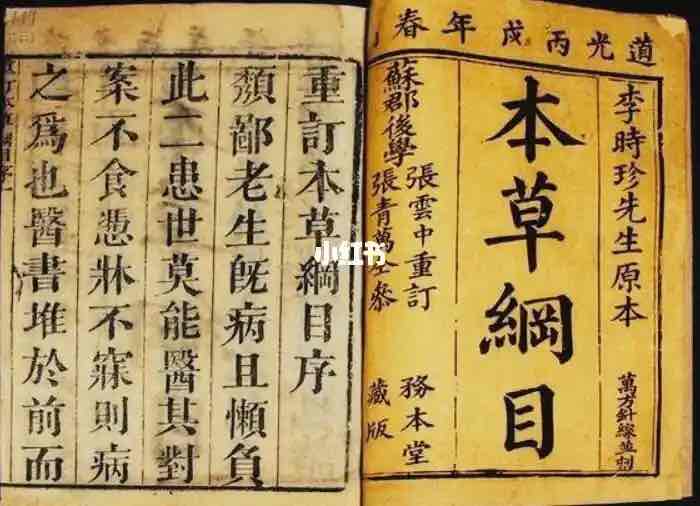 道光丙戌年春
李時珍先生原本
萬方針線並刻
本草綱目
張雲中重訂
蘇郡後學
張青萬仝參
務本堂
藏版
重訂本草綱目序
頽鄙老生旣病且懶負
此二患世莫能醫其對
案不食憑牀不寐則病
之爲也醫書堆於前而
小红书